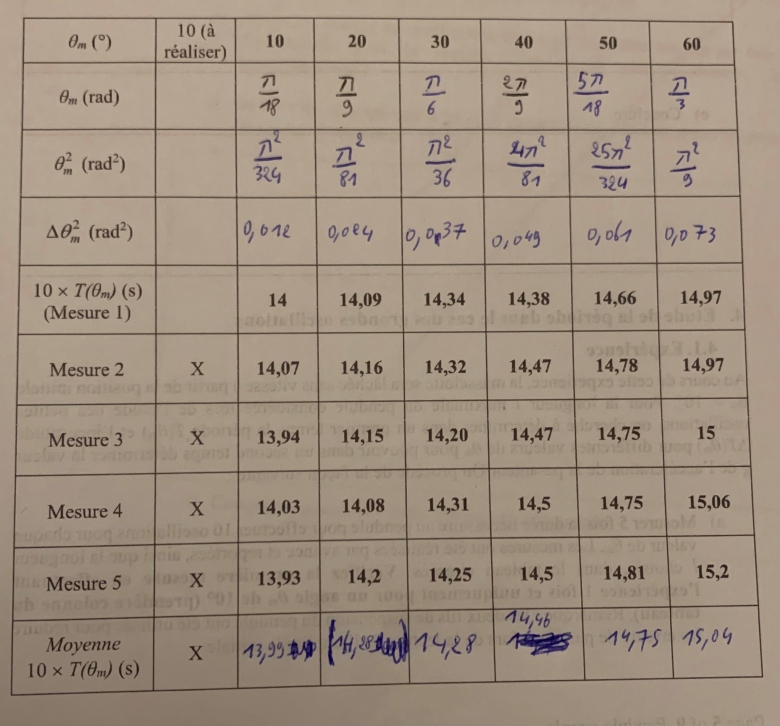 θm (°) 10 (à réaliser) 10 20 30 40 50 60
θm (rad) π/18 π/9 π/6 2π/9 5π/18 π/3
θm² (rad²) π²/324 π²/81 π²/36 4π²/81 25π²/324 π²/9
Δθm² (rad²) 0,012 0,024 0,037 0,049 0,061 0,073
10 × T(θm) (s) (Mesure 1) 14 14,09 14,34 14,38 14,66 14,97
Mesure 2 X 14,07 14,16 14,32 14,47 14,78 14,97
Mesure 3 X 13,94 14,15 14,20 14,47 14,75 15
Mesure 4 X 14,03 14,08 14,31 14,5 14,75 15,06
Mesure 5 X 13,93 14,2 14,25 14,5 14,81 15,2
Moyenne 10 × T(θm) (s) X 13,99 14,28 14,46 14,75 15,04